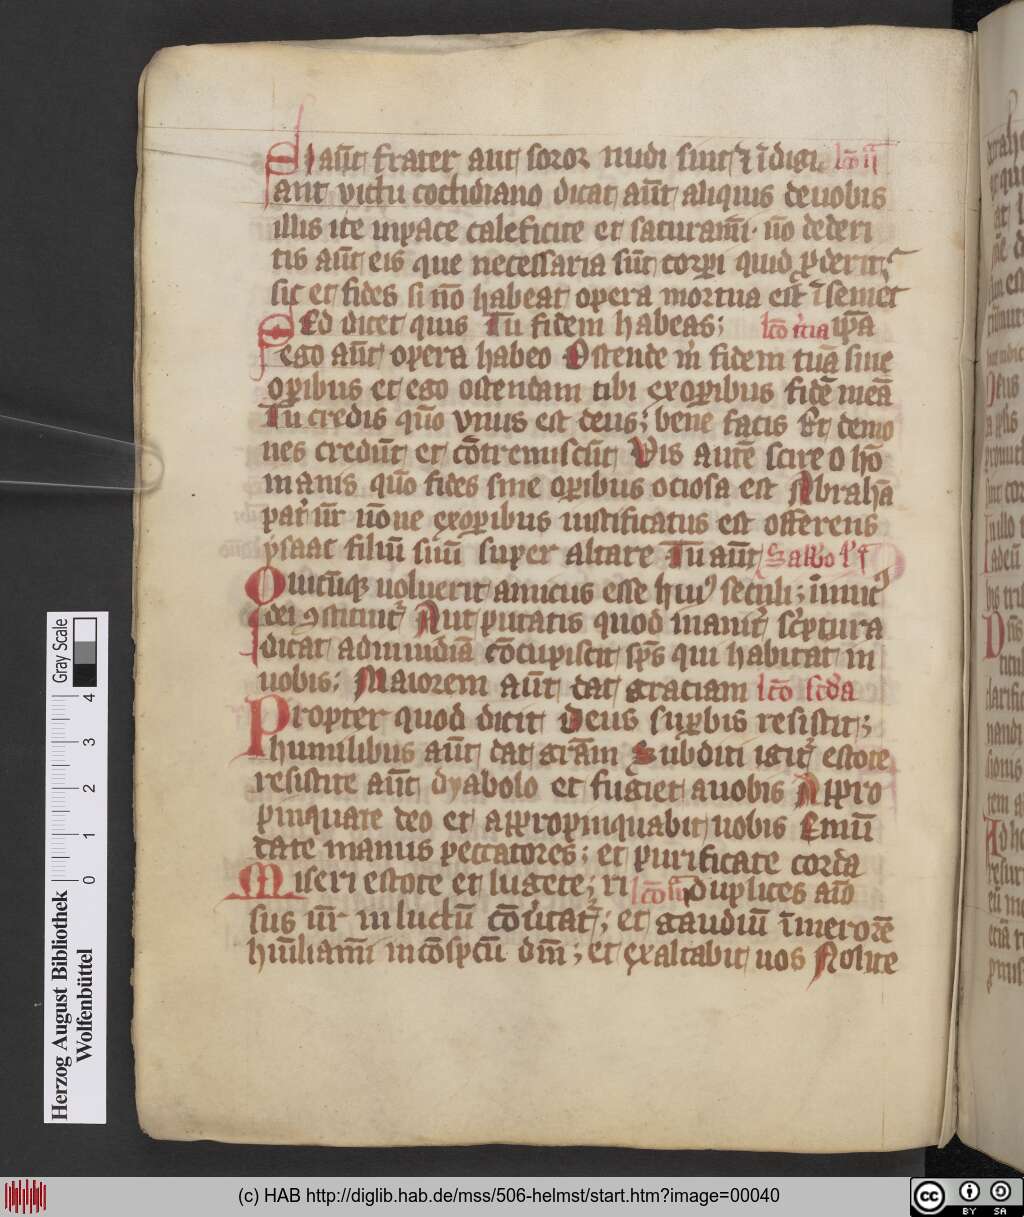 Si aūt frater aut soror nudi sint ⁊ īdigi lc̄o ii
ant victu cotidiano dicat aūt aliquis de uobis
illis ite in pace caleficite et saturam̄i · nō dederi
tis aūt eis que necessaria sūt corpī quid ꝓderit
sic et fides si nō habeat opera mortua est ī semet
Sed dicet quis Tu fidem habeas ; lc̄o t'cia ip̄a
ego aūt opera habeo Ostende m' fidem tuā sine
oꝑibus et ego ostendam tibi ex oꝑibus fidē meā
Tu credis quō vnus est deus ; bene facis Et demo
nes credūt et cōtremiscūt Vis autē scire o hō
inanis quō fides sine oꝑibus ociosa est Abrahā
pat' nr̄ nōne ex oꝑibus iustificatus est offerens
ysaac filiū suū super altare Tu aūt Sabbo
Quicūq̨ uoluerit amicus esse hui' seculi ; inimic'
dei ꝯstituit' Aut putatis quod inanit' sc'ptura
dicat ad inuidiā cōcupiscit sp̄s qui habitat in
uobis ; Maiorem aūt dat graciam lc̄o sc̄da
Propter quod dicit Deus suꝑbis resistit ;
humilibus aūt dat grām Subditi igit' estote
resistite aūt dyabolo et fugiet a uobis Appro
pinquate deo et appropinquabit uobis Emū
date manus peccatores ; et purificate corda
Miseri estote et lugete ; ri lc̄o duplices aīo
sus ur̄ in luctū cōu'tat' ; et gaudiū ī merorē
hūiliam̄i in cōspc̄u dn̄i ; et exaltabit uos Nolite
Gray Scale
0 1 2 3 4
Herzog August Bibliothek
Wolfenbüttel
(c) HAB http://diglib.hab.de/mss/506-helmst/start.htm?image=00040
cc BY SA